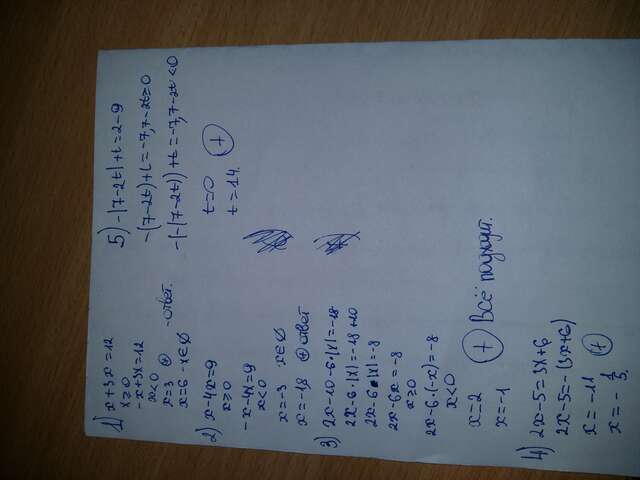 1) x+3x=12
x≥0
-x+3x=12
x<0
x=3 ⊕ -ответ.
x=6 - x∈∅
2) x-4x=9
x≥0
-x-4x=9
x<0
x=-3 x∈∅
x=-1,8 ⊕ ответ
3) 2x-10-6·|x|=-18
2x-6·|x|=-18+10
2x-6·|x|=-8
2x-6x=-8
x≥0
2x-6·(-x)=-8
x<0
x=2
x=-1
⊕ Всё подходит.
4) 2x-5=3x+6
2x-5=-(3x+6)
x=-11
x=-1/5. ⊕
5) -|7-2t|+t=2-9
-(7-2t)+t=-7, 7-2t≥0
-(-(7-2t))+t=-7, 7-2t<0
t=0
t=14. ⊕